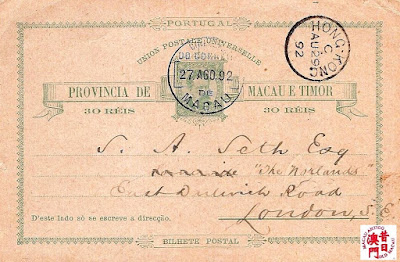 PORTUGAL
UNION POSTALE UNIVERSELLE
PROVINCIA DE MACAU E TIMOR
30 RÉIS 30 RÉIS
27 AGO.92
MACAU
HONG-KONG
C
AU 29
92
S. A. Seth Esq
"The Norlands"
East Dulwich Road
London, S.E.
D'este lado só se escreve a direcção.
BILHETE POSTAL
昔日澳門